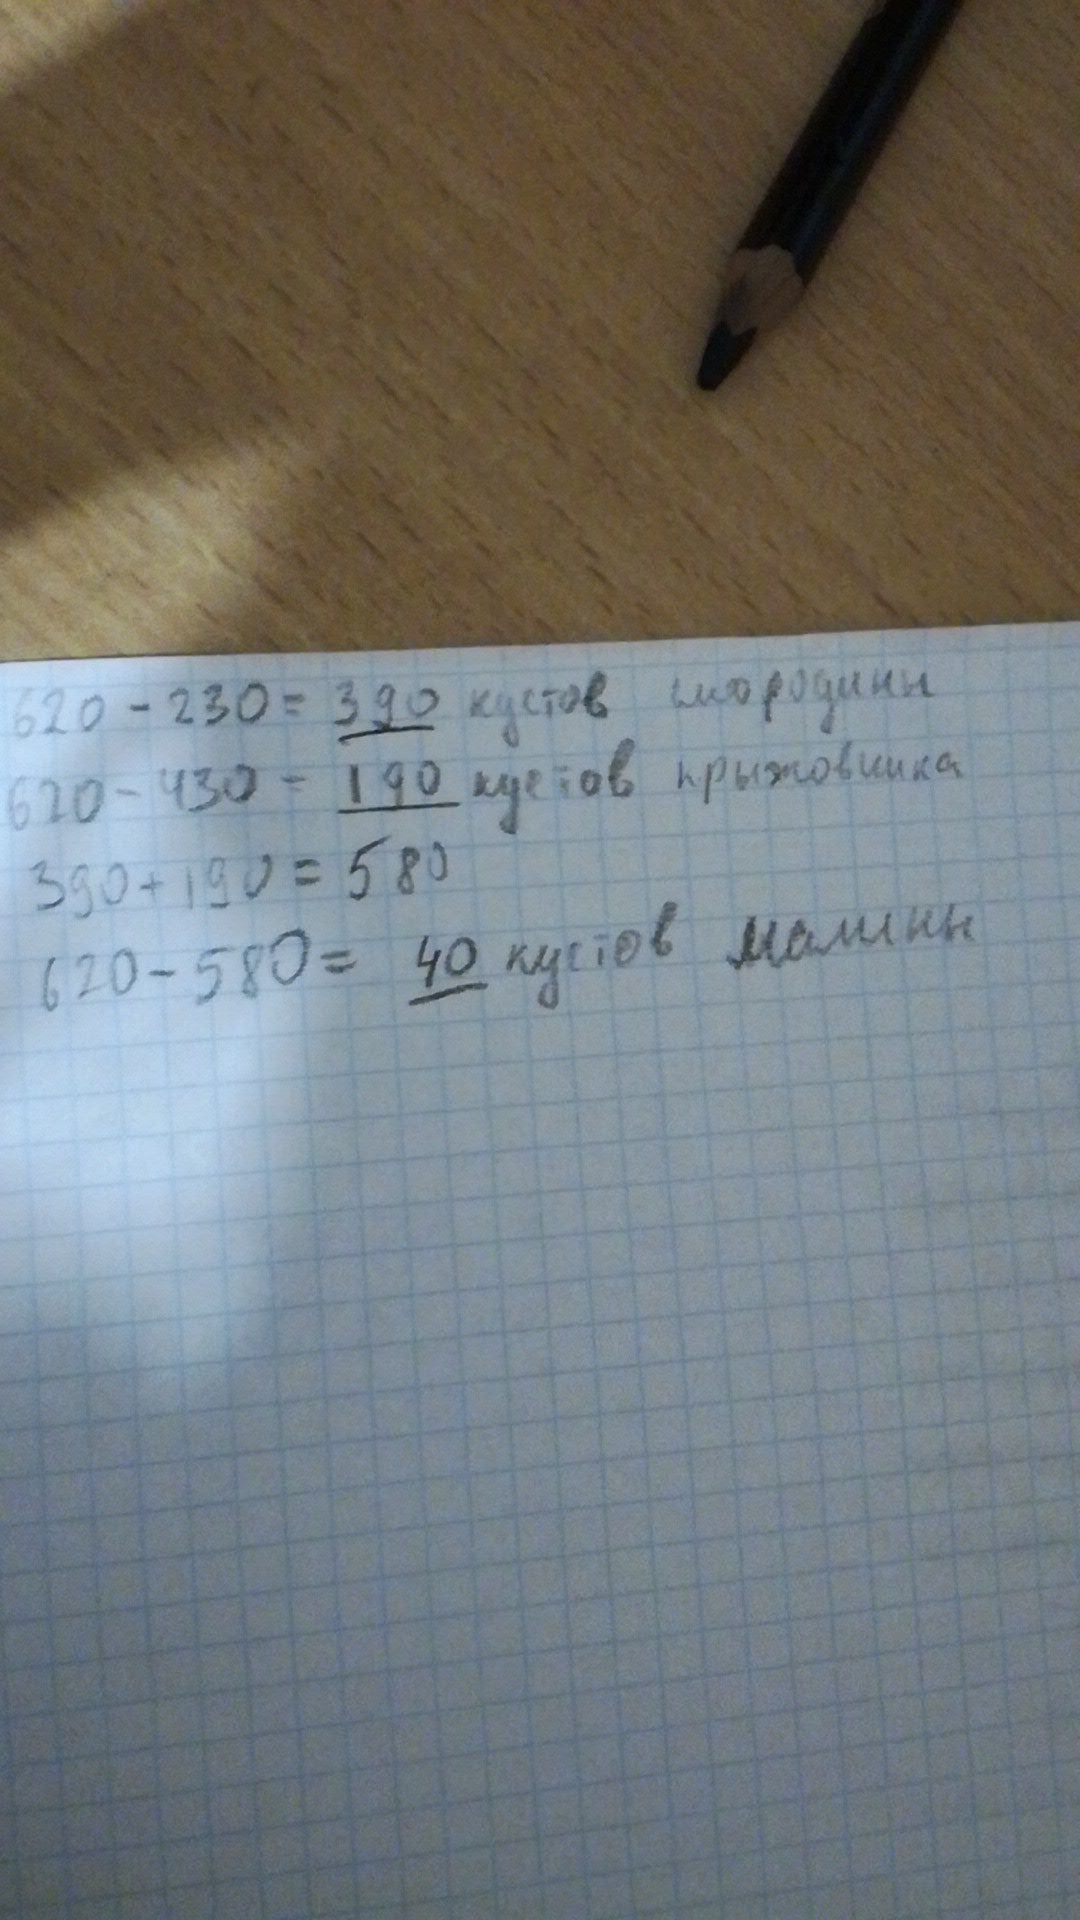 620 - 230 = 390 кустов смородины
620 - 430 = 190 кустов крыжовника
390 + 190 = 580
620 - 580 = 40 кустов малины